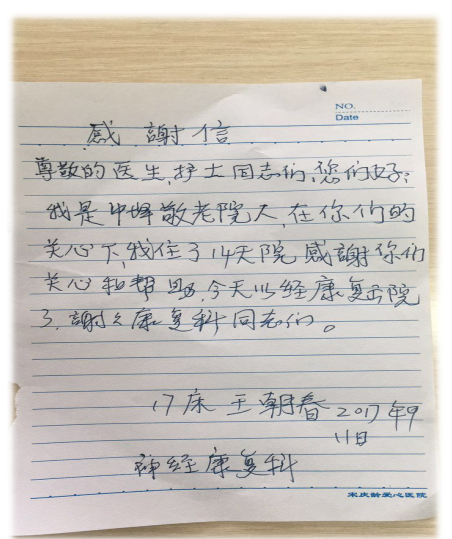 NO.
Date
感謝信
尊敬的医生,护士同志们,您们好:
我是中蜂敬老院人,在你们的
关心下,我住了14天院 感謝你们
关心和帮助,今天以经康复出院
了.謝々康复科同志们。
17床 王朝春 2017年9
11日
神经康复科
宋庆龄爱心医院